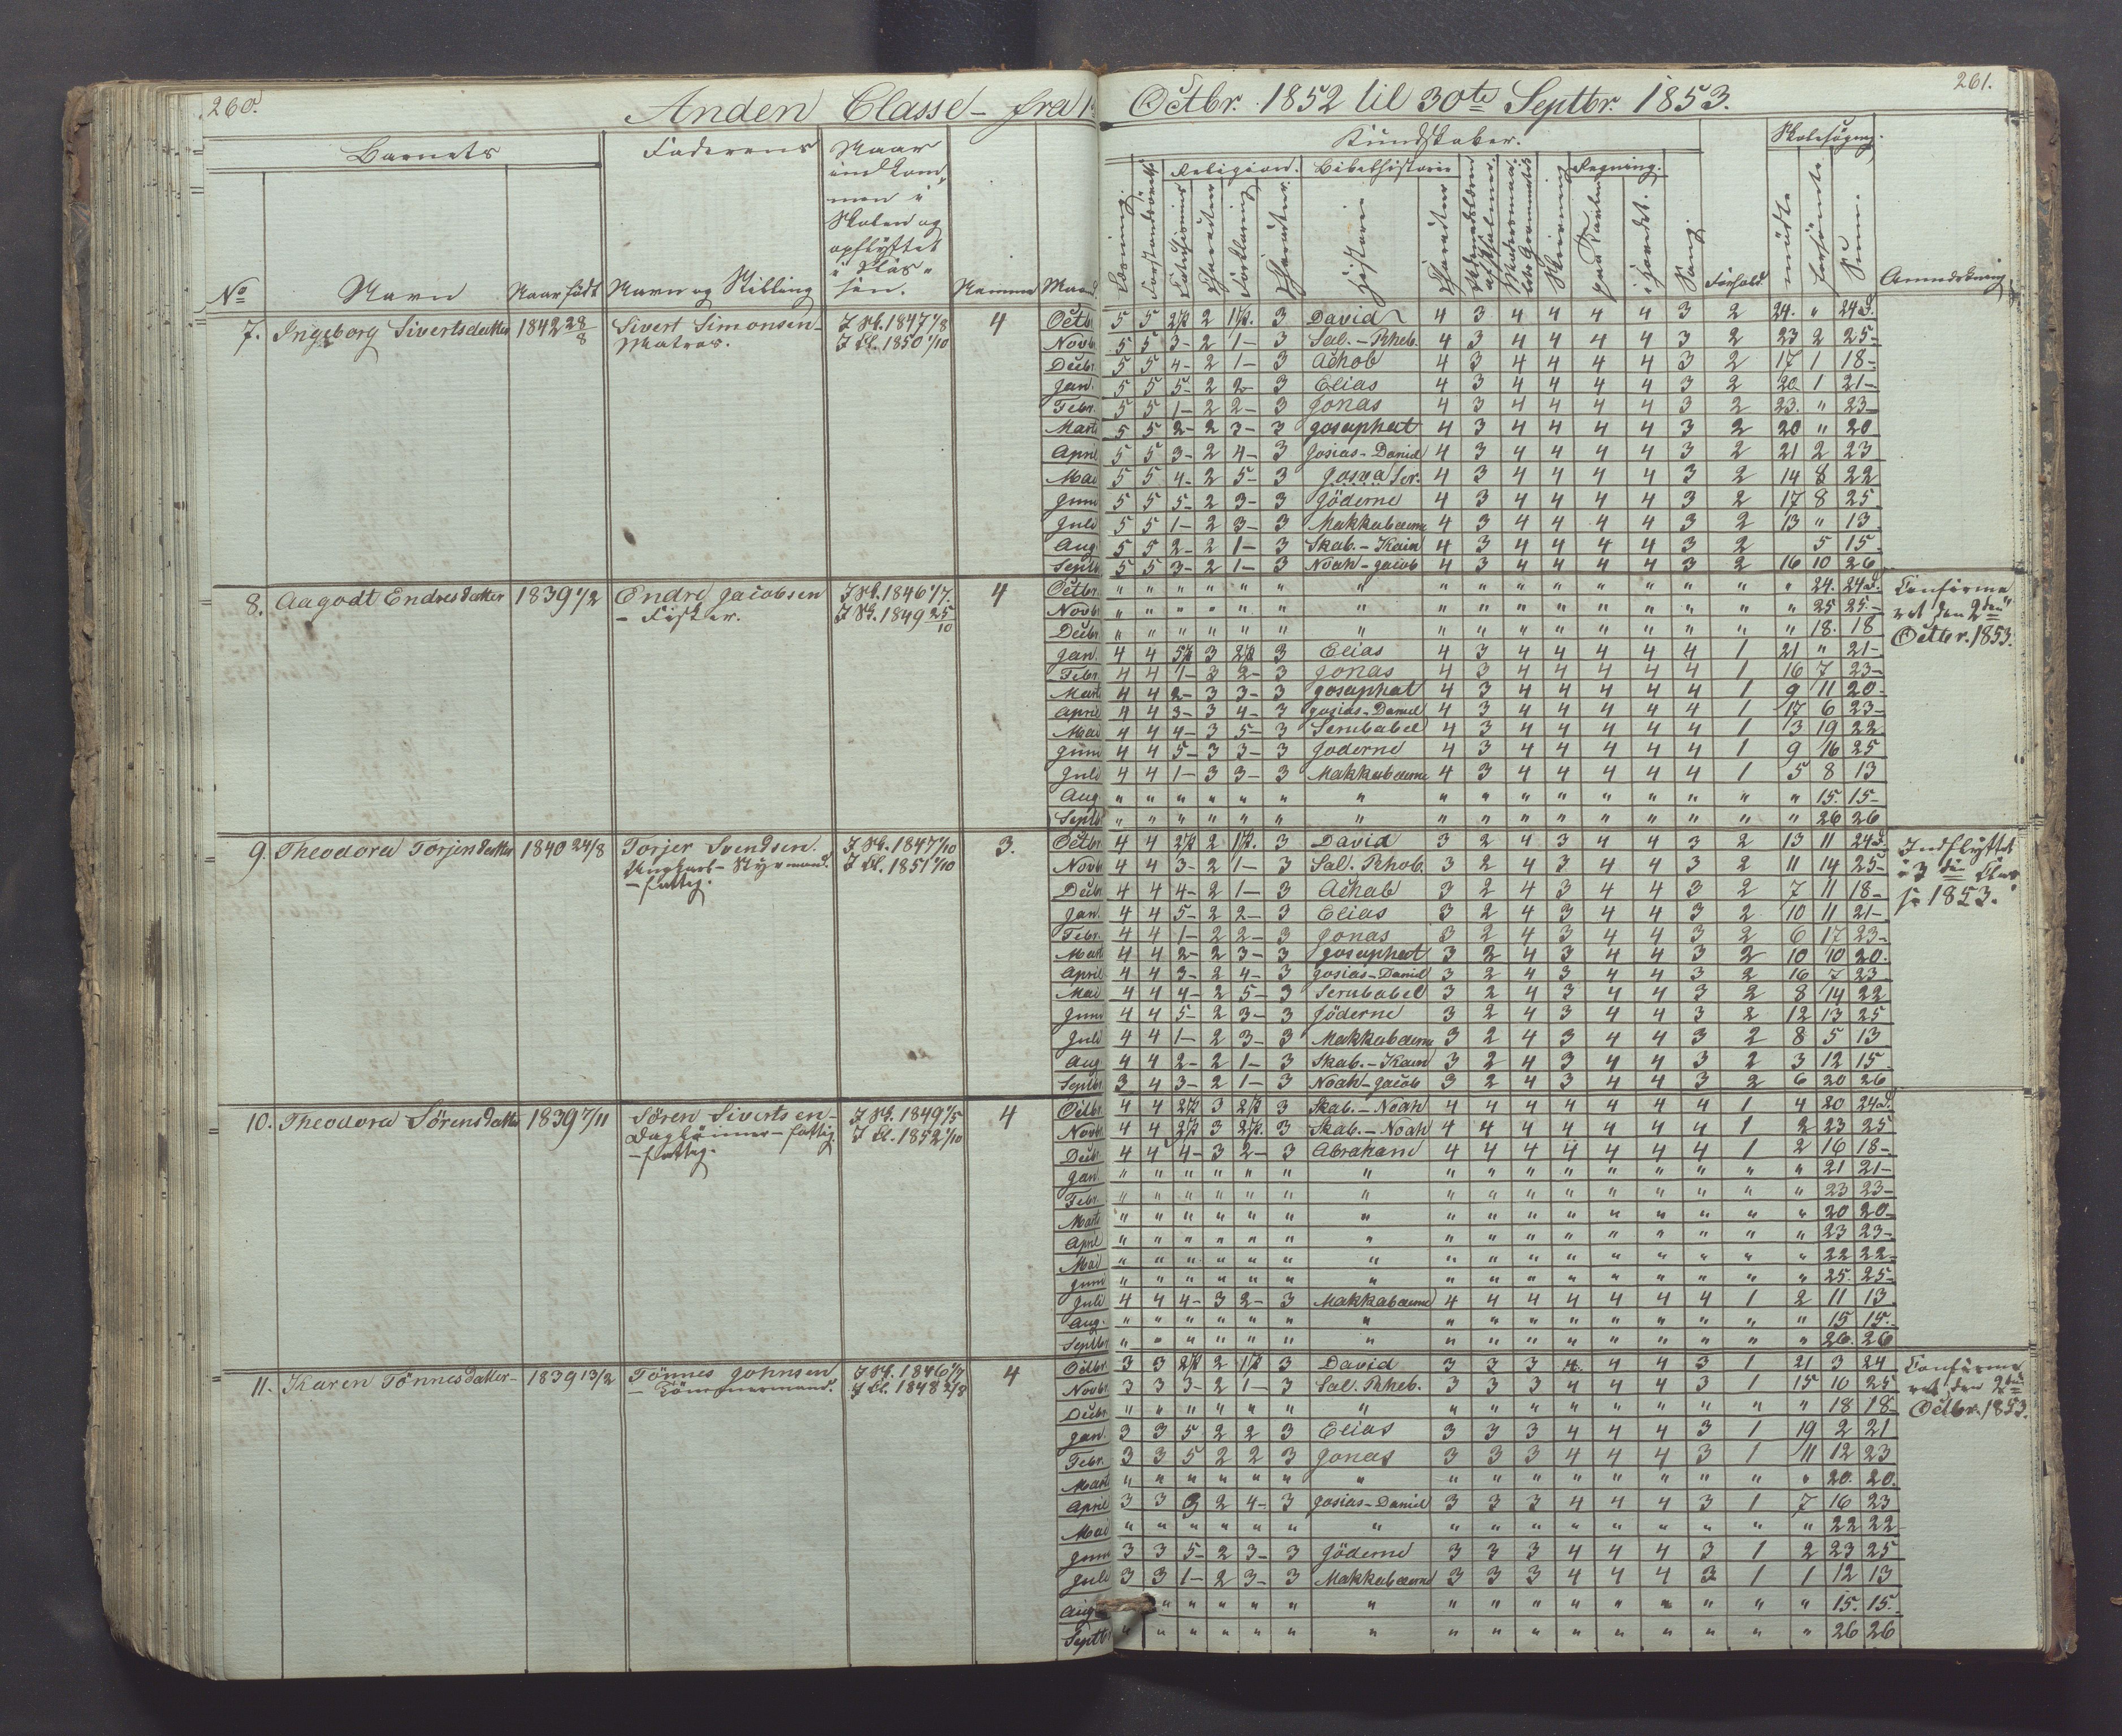 260.
Anden Classe - fra 1
Octbr. 1852 til 30te Septbr. 1853.
261.
Barnets
Faderens
Naar
indkom-
men i
Skolen og
opflyttet
i Klas-
sen.
Kundskaber.
Skolesøgning.
Religion. Bibelhistorie
Regning.
No Navn Naar født Navn og Stilling Nemme Maaned
Forhold.
Sum.
Anmærkning
7. Ingeborg Sivertsdatter 1842 28/8 Sivert Simonsen - I Sk. 1847 1/8 4
Matros. I Kl. 1850 1/10
Octb. 5 5 2 2 1 3 David 4 3 4 4 4 4 3 2 24. " 24d.
Novb. 5 5 3- 2 1- 3 Sal. - Rheb. 4 3 4 4 4 4 3 2 23 2 25-
Decbr. 5 5 4- 2 1- 3 Achab 4 3 4 4 4 4 3 2 17 1 18-
Jan. 5 5 5- 2 2- 3 Elias 4 3 4 4 4 4 3 2 20 1 21-
Febr. 5 5 1- 2 2- 3 Jonas 4 3 4 4 4 4 3 2 23. " 23-
Marts 5 5 2- 2 3- 3 Josaphat 4 3 4 4 4 4 3 2 20 " 20
April 5 5 3- 2 4- 3 Josias - Daniel 4 3 4 4 4 4 3 2 21 2 23
Mai 5 5 4- 2 5- 3 Ser. 4 3 4 4 4 4 3 2 14 8 22
Juni 5 5 5- 2 3- 3 Jöderne 4 3 4 4 4 4 3 2 17 8 25
Juli 5 5 1- 2 3- 3 Makkabæerne 4 3 4 4 4 4 3 2 13 " 13
Aug. 5 5 2- 2 1- 3 Skab. - Kain 4 3 4 4 4 4 3 2 5 15
Septb. 5 5 3- 2 1- 3 Noah - Jacob 4 3 4 4 4 4 3 2 16 10 26
8. Aagodt Endresdatter 1839 1/2 Endre Jacobsen I Sk. 1846 1/7. 4
- Fisker. I Kl. 1849 25/10
Octbr. " " " " " " " " " " " " " " " " 24. 24d.
Novb. " " " " " " " " " " " " " " " " 25 25.-
Decbr. " " " " " " " " " " " " " " " " 18. 18
Jan. 4 4 5 3 2 3 Elias 4 3 4 4 4 4 4 1 21 " 21-
Febr. 4 4 1- 3 2- 3 Jonas 4 3 4 4 4 4 4 1 16 7 23-
Marts 4 4 2- 3 3- 3 Josaphat 4 3 4 4 4 4 4 1 9 11 20-
April 4 4 3- 3 4- 3 Josias - Daniel 4 3 4 4 4 4 4 1 17 6 23-
Mai 4 4 4- 3 5- 3 Serubabel 4 3 4 4 4 4 4 1 3 19 22
Juni 4 4 5- 3 3- 3 Joderne 4 3 4 4 4 4 4 1 9 16 25
Juli 4 4 1- 3 3- 3 Makkabæerne 4 3 4 4 4 4 4 1 5 8 13
Aug. " " " " " " " " " " " " " " " " 15. 15-
Septb. " " " " " " " " " " " " " " " " 26 26
Confirme-
ret den 2den
Octbr. 1853.
9. Theodora Torjersdatter 1840 24/8 Torjer Svendsen. I Sk. 1847 1/10 3.
Styrmand. I Kl. 1851 1/10
- fattig.
Octbr. 4 4 2 2 1 3 David 3 2 4 3 4 4 3 2 13 11 24d.
Novb. 4 4 3- 2 1- 3 Sal. Rhob. 3 2 4 3 4 4 3 2 11 14 25-
Decbr. 4 4 4- 2 1- 3 Achab 3 2 4 3 4 4 3 2 7 11 18-
Jan. 4 4 5- 2 2- 3 Elias 3 2 4 3 4 4 3 2 10 11 21-
Febr. 4 4 1- 2 2- 3 Jonas 3 2 4 3 4 4 3 2 6 17 23-
Mart 4 4 2- 2 3- 3 Josaphat 3 2 4 3 4 4 3 2 10 10 20.
April 4 4 3- 2 4- 3 Josias - Daniel 3 2 4 3 4 4 3 2 16 7 23
Mai 4 4 4- 2 5- 3 Serubabel 3 2 4 3 4 4 3 2 8 14 22
Juni 4 4 5- 2 3- 3 Jöderne 3 2 4 3 4 4 3 2 12 13 25
Juli 4 4 1- 2 3- 3 Makkabæerne 3 2 4 3 4 4 3 2 8 5 13
Aug. 4 4 2- 2 1- 3 Skab. - Kain 3 2 4 3 4 4 3 2 3 12 15
Septbr. 3 4 3- 2 1- 3 Noah - Jacob 3 2 4 3 4 4 3 2 6 20 26
Indflyttet
i 3die Clas-
se 1853.
10. Theodora Sörensdatter 1839 7/11 Sören Sivertsen - I Sk. 1849 1/5 4
Dagleiner - fattig. I Kl. 1852 1/10
- fattig.
Octbr. 4 4 2 3 2 3 Skab. - Noah 4 4 4 4 4 4 4 1 4 20 24d.
Novbr. 4 4 2 3 2 3 Skab. - Noah 4 4 4 4 4 4 4 1 2 23 25
Decbr. 4 4 4- 3 2- 3 Abraham 4 4 4 4 4 4 4 1 2 16 18-
Jan. " " " " " " " " " " " " " " " " 21 21-
Febr. " " " " " " " " " " " " " " " " 23 23-
Marts " " " " " " " " " " " " " " " " 20 20-
April " " " " " " " " " " " " " " " " 23 23-
Mai " " " " " " " " " " " " " " " " 22 22-
Juni " " " " " " " " " " " " " " " " 25. 25-
Juli 4 4 4- 3 2- 3 Makkabæerne 4 4 4 4 4 4 4 1 2 11 13
Aug. " " " " " " " " " " " " " " " " 15 15.-
Septbr. " " " " " " " " " " " " " " " " 26. 26
11. Karen Tönnesdatter - 1839 13/2 Tönnes Johnsen I Sk. 1846 1/7 4
- Tömmermand. I Kl. 1848 2/8
Octbr. 3 3 2 2 1 3 David 3 3 3 4. 4 4 3 1 21 3 24
Novbr. 3 3 3- 2 1- 3 Sal. Rheb. 3 3 3 4 4 4 3 1 15 10 25
Decbr. " " " " " " " " " " " " " " " " 18 18-
Jan. 3 3 5 2 2 3 Elias 3 3 3 4 4 4 3 1 19 2 21
Febr. 3 3 5 2 2 3 Jonas 3 3 3 4 4 4 3 1 11 12 23
Marts " " " " " " " " " " " " " " " " 20. 20.
April 3 3 3 2 4- 3 Josias - Daniel 3 3 3 4 4 4 3 1 7 16 23
Mai " " " " " " " " " " " " " " " " 22 22
Juni 3 3 5- 2 3- 3 Jöderne 3 3 3 4 4 4 3 1 2 23 25
Juli 3 3 1- 2 3- 3 Makkabæerne 3 3 3 4 4 4 3 1 1 12 13
Aug. " " " " " " " " " " " " " " " 15. 15.
Septbr " " " " " " " " " " " " " " " " 26 26
Confirme-
ret den 2den
Octbr. 1853.